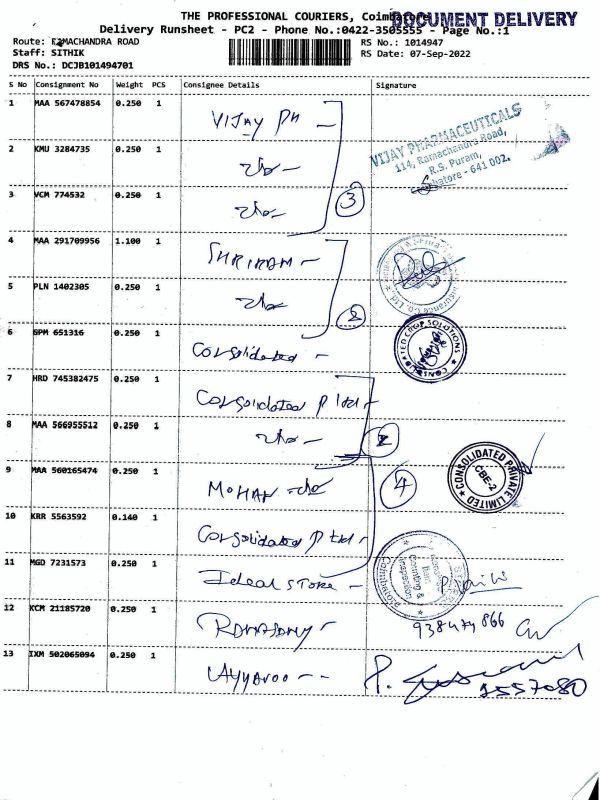 THE PROFESSIONAL COURIERS, Coimbatore
DOCUMENT DELIVERY
Delivery Runsheet - PC2 - Phone No.:0422-3505555 - Page No.:1
Route: RAMACHANDRA ROAD
RS No.: 1014947
Staff: SITHIK
RS Date: 07-Sep-2022
DRS No.: DCJB101494701
S No Consignment No Weight PCS Consignee Details Signature
1 MAA 567478854 0.250 1 VIJAY PH
VIJAY PHARMACEUTICALS
114, Ramachandra Road,
R.S. Puram,
2 KMU 3284735 0.250 1
3 VCM 774532 0.250 1
3
4 MAA 291709956 1.100 1 SHRIRAM
5 PLN 1402305 0.250 1
2
6 GPM 651316 0.250 1 Consolidated
CROP SOLUTIONS
7 HRD 745382475 0.250 1 Consolidated P Ltd
8 MAA 566955512 0.250 1
9 MAA 560165474 0.250 1 MOHAN
4
CONSOLIDATED PRIVATE LIMITED
CBE-2
10 KRR 5563592 0.140 1 Consolidated P Ltd
11 MGD 7231573 0.250 1 Ideal STORE
12 KCM 21185720 0.250 1
13 IXM 502065094 0.250 1 AYYAVOO